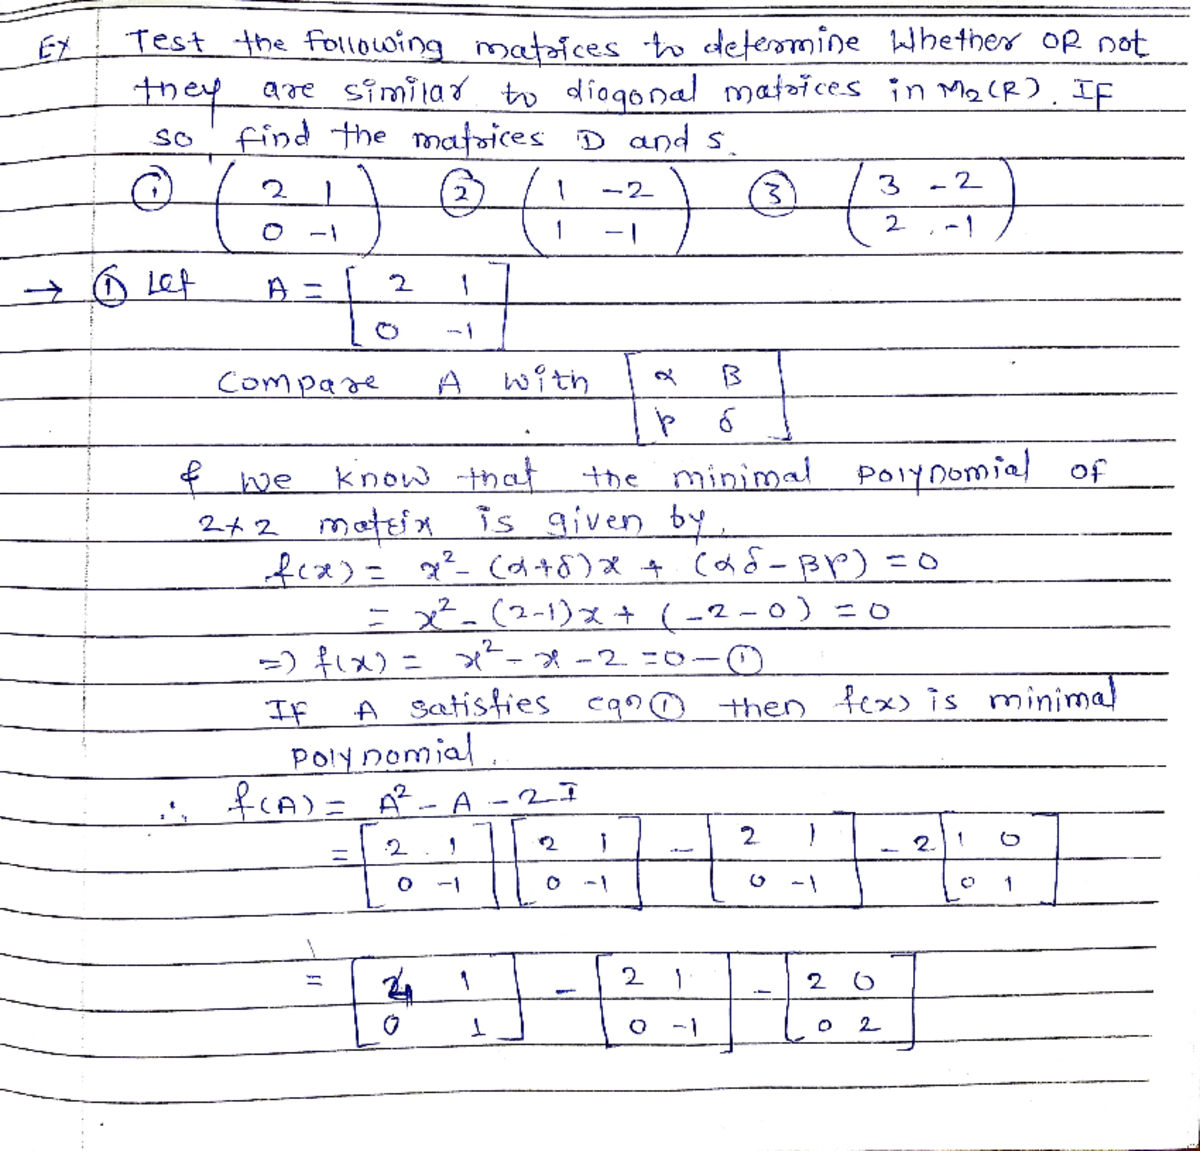 Ex Test the following matrices to determine whether OR not
they are similar to diagonal matrices in M₂(R). IF
so, find the matrices D and S.
① (2 1; 0 -1) ② (1 -2; 1 -1) ③ (3 -2; 2 -1)
→ ① Let A = [2 1; 0 -1]
Compare A with [α β; γ δ]
& we know that the minimal polynomial of
2×2 matrix is given by,
f(x) = x² - (α+δ)x + (αδ - βγ) = 0
= x² - (2-1)x + (-2-0) = 0
=> f(x) = x² - x - 2 = 0 — ①
IF A satisfies eqn ① then f(x) is minimal
polynomial.
∴ f(A) = A² - A - 2I
= [2 1; 0 -1] [2 1; 0 -1] - [2 1; 0 -1] - 2[1 0; 0 1]
= [4 1; 0 1] - [2 1; 0 -1] - [2 0; 0 2]